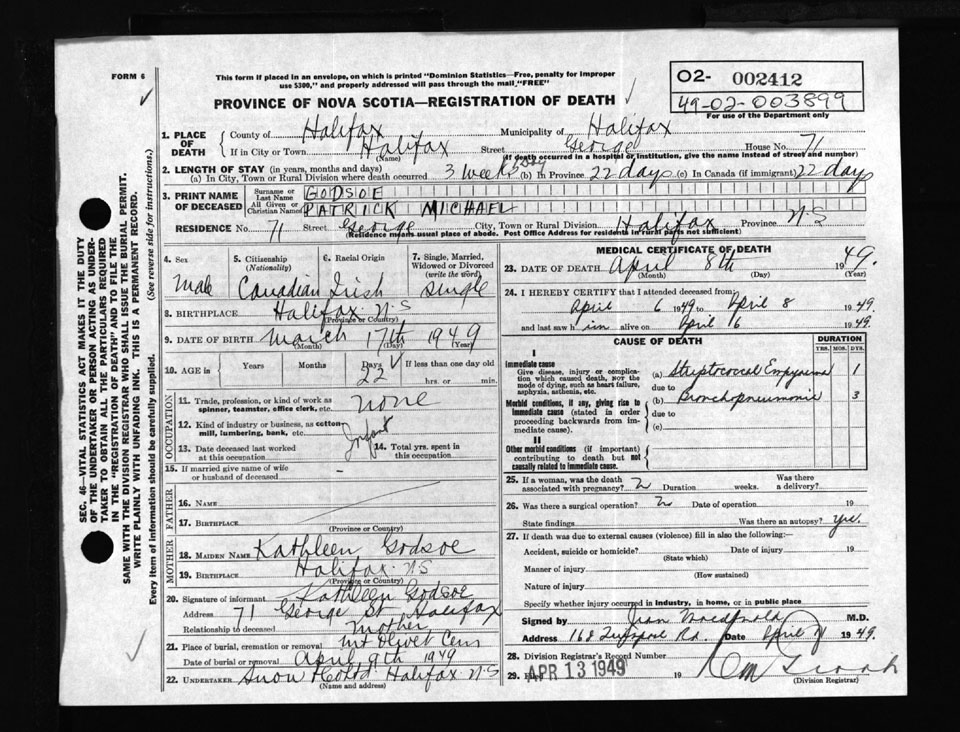 FORM 6
This form if placed in an envelope, on which is printed "Dominion Statistics—Free, penalty for improper
use $300," and properly addressed will pass through the mail "FREE"
PROVINCE OF NOVA SCOTIA—REGISTRATION OF DEATH
O2- 002412
49-02-003899
For use of the Department only
SEC. 46—VITAL STATISTICS ACT MAKES IT THE DUTY
OF THE UNDERTAKER OR PERSON ACTING AS UNDER-
TAKER TO OBTAIN ALL THE PARTICULARS REQUIRED
IN THE "REGISTRATION OF DEATH" AND TO FILE THE
SAME WITH THE DIVISION REGISTRAR WHO SHALL ISSUE THE BURIAL PERMIT.
WRITE PLAINLY WITH UNFADING INK. THIS IS A PERMANENT RECORD.
Every item of information should be carefully supplied. (See reverse side for instructions.)
1. PLACE OF DEATH County of Halifax Municipality of Halifax
If in City or Town Halifax Street George House No. 71
(Name) (If death occurred in a hospital or institution, give the name instead of street and number)
2. LENGTH OF STAY (in years, months and days)
(a) In City, Town or Rural Division where death occurred 3 weeks 1 day (b) In Province 22 days (c) In Canada (if immigrant) 22 days
3. PRINT NAME OF DECEASED
Surname or Last Name GODSOE
All Given or Christian Names PATRICK MICHAEL
RESIDENCE No. 71 Street George City, Town or Rural Division Halifax Province N-S
(Residence means usual place of abode. Post Office Address for residents in rural parts not sufficient)
4. Sex Male
5. Citizenship (Nationality) Canadian
6. Racial Origin Irish
7. Single, Married, Widowed or Divorced (write the word) Single
8. BIRTHPLACE Halifax N.S
(Province or Country)
9. DATE OF BIRTH March 17th 1949
(Month) (Day) (Year)
10. AGE in Years Months Days 22 If less than one day old hrs. or min.
OCCUPATION
11. Trade, profession, or kind of work as spinner, teamster, office clerk, etc. none
12. Kind of industry or business, as cotton mill, lumbering, bank, etc. Infant
13. Date deceased last worked at this occupation
14. Total yrs. spent in this occupation
15. If married give name of wife or husband of deceased -
FATHER
16. Name
17. Birthplace
(Province or Country)
MOTHER
18. MAIDEN NAME Kathleen Godsoe
19. BIRTHPLACE Halifax N.S
(Province or Country)
20. Signature of informant Kathleen Godsoe
Address 71 George St Halifax
Relationship to deceased Mother
21. Place of burial, cremation or removal Mt Olivet Cem
Date of burial or removal April 9th 1949
22. UNDERTAKER Snow Halifax N-S
(Name and address)
MEDICAL CERTIFICATE OF DEATH
23. DATE OF DEATH April 8th 1949.
(Month) (Day) (Year)
24. I HEREBY CERTIFY that I attended deceased from:
April 6 1949 to April 8 1949.
and last saw him alive on April 6 1949.
CAUSE OF DEATH DURATION
YRS. MOS. DYS.
I
Immediate cause
Give disease, injury or complication which caused death, NOT the mode of dying, such as heart failure, asphyxia, asthenia, etc.
(a) Streptococcal Empyema 1
due to
Morbid conditions, if any, giving rise to immediate cause (stated in order proceeding backwards from immediate cause).
(b) Bronchopneumonia 3
due to
(c)
II
Other morbid conditions (if important) contributing to death but not causally related to immediate cause.
25. If a woman, was the death associated with pregnancy? Duration weeks. Was there a delivery?
26. Was there a surgical operation? Date of operation 19
State findings Was there an autopsy? Yes.
27. If death was due to external causes (violence) fill in also the following:—
Accident, suicide or homicide? Date of injury 19
(State which)
Manner of injury
(How sustained)
Nature of injury
Specify whether injury occurred in industry, in home, or in public place
Signed by Jean M.D.
Address 168 Rd. Date April 1949.
28. Division Registrar's Record Number
29. Filed APR 13 1949 19
(Division Registrar)